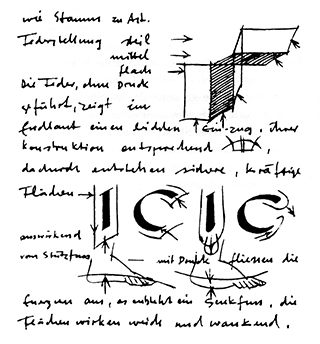 wie Stamm zu Ast.
Federstellung steil
mittel
flach
Die Feder, ohne Druck
geführt, zeigt im
Endlaut einen leichten Einzug, ihrer
Konstruktion entsprechend
dadurch entstehen sichere, kräftige
Flächen
I C I C
auswirkend
von Stützfuss
— mit Druck fliessen die
aus, es entsteht ein Senkfuss, die
Flächen wirken weich und wankend.